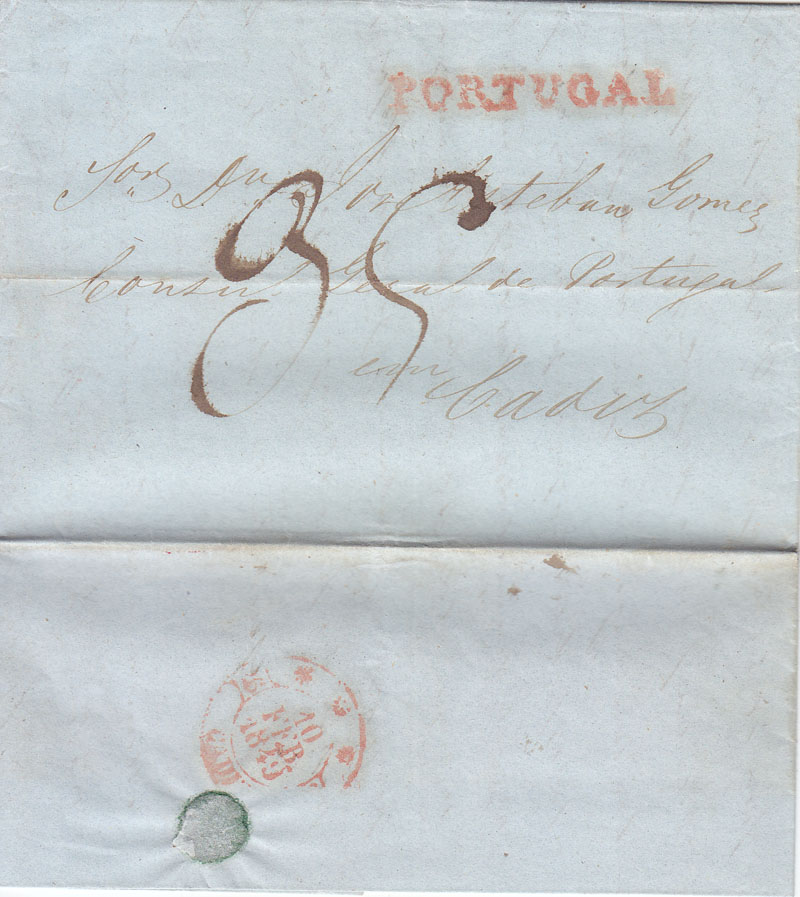 PORTUGAL
Sor Dn Jose Esteban Gomez
Consul Geral de Portugal
em Cadiz
10
FEB
1845